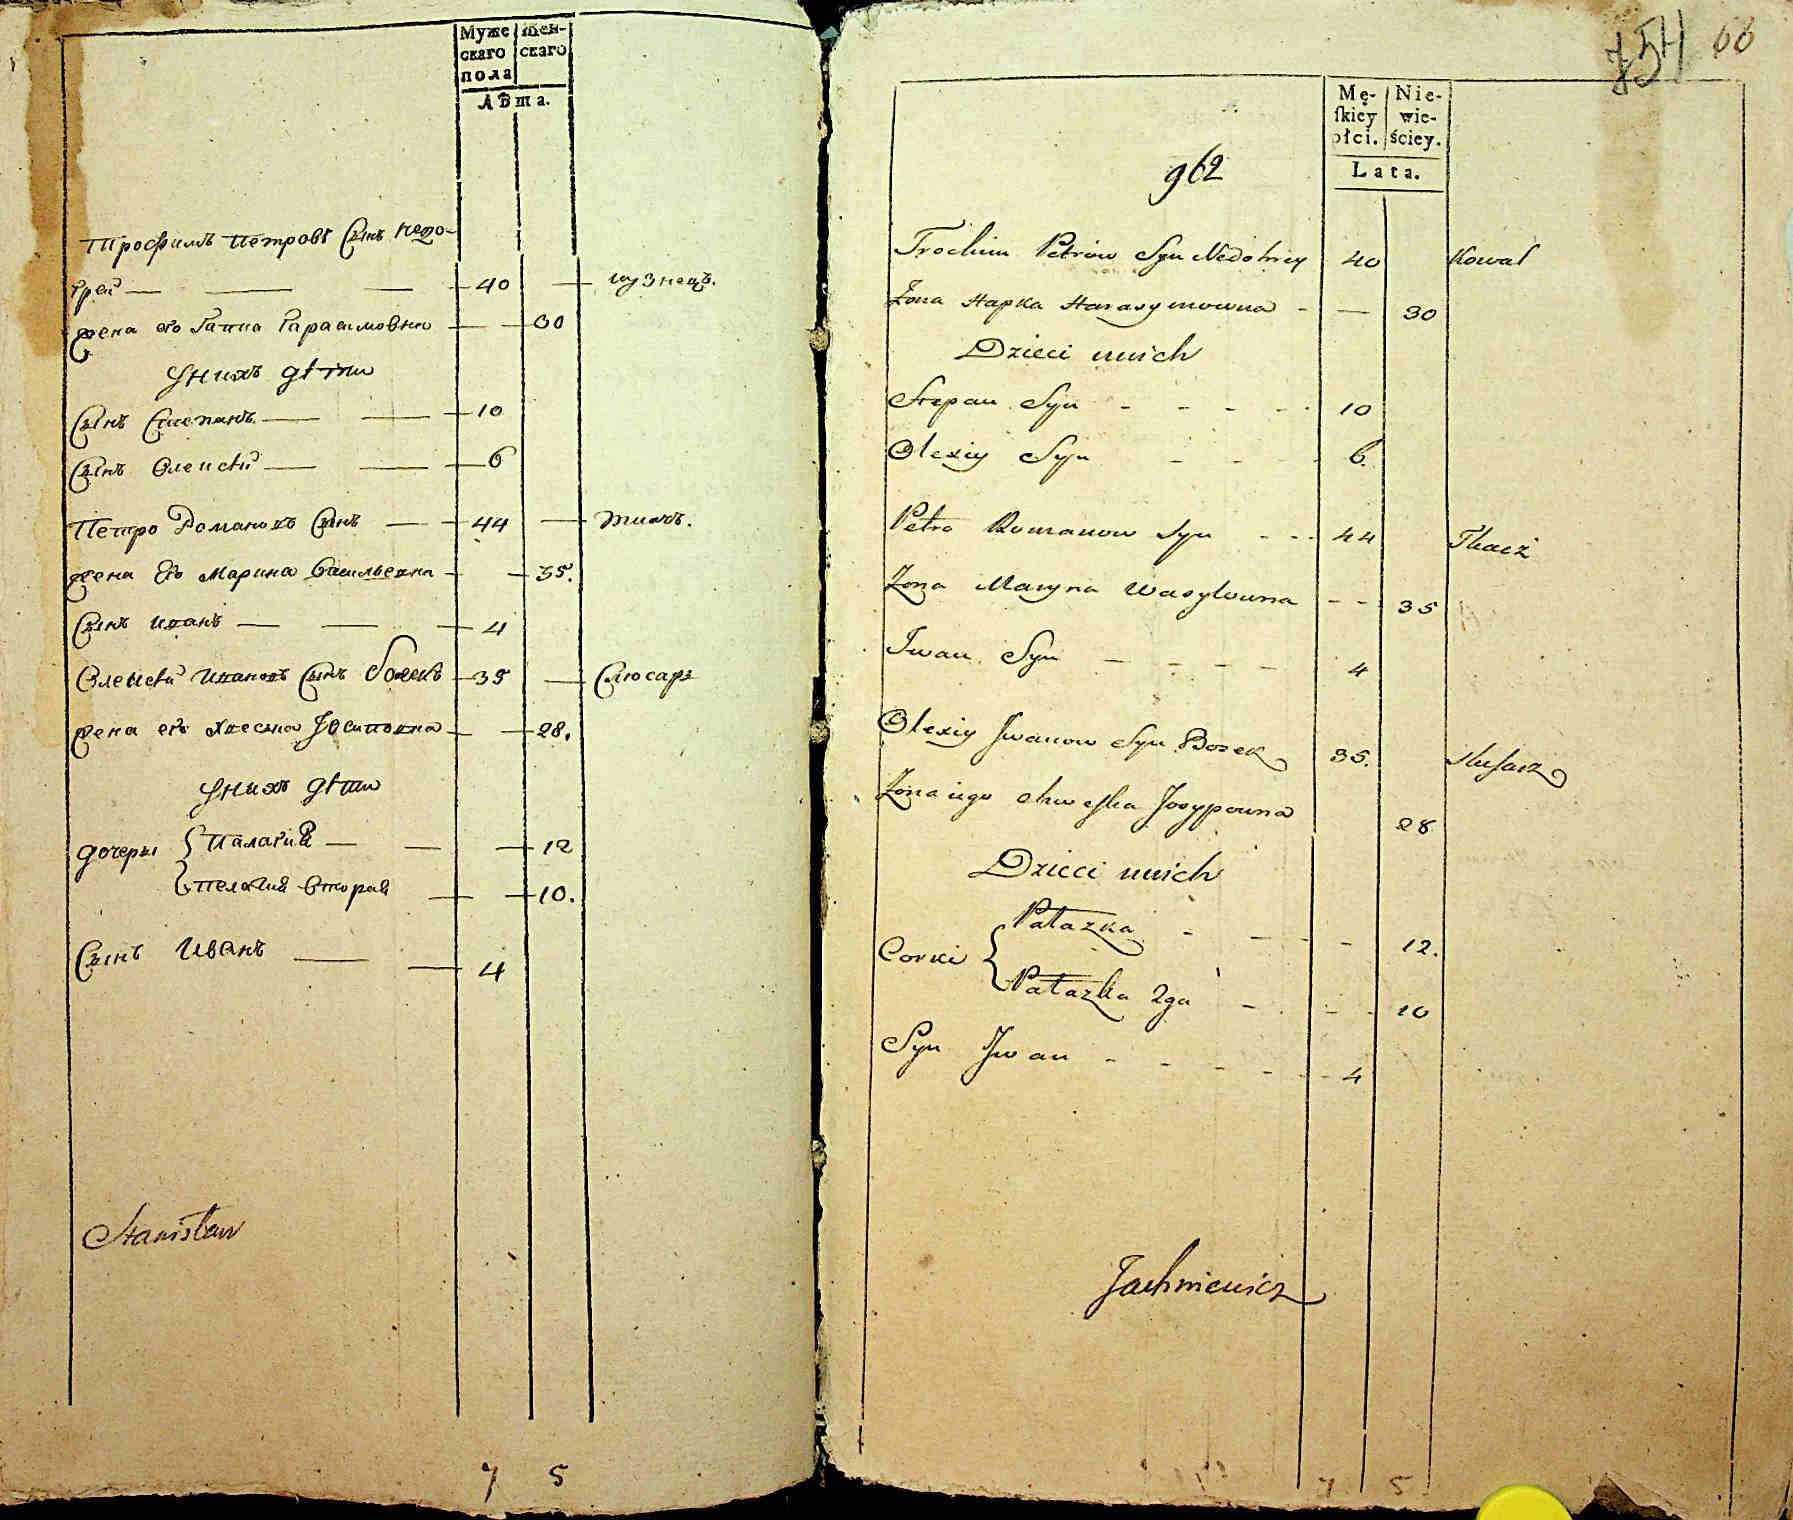 Муже
скаго
пола
Жен-
скаго
Лѣта.
Трофимъ Петровъ Сынъ Недо-
грей 40 кузнецъ.
жена его Гапка Гарасимовна 30
Унихъ дѣти
Сынъ Степанъ 10
Сынъ Олексѣй 6
Петро Романовъ Сынъ 44 ткачъ.
жена Его Марина Васильевна 35.
Сынъ Иванъ 4
Олексѣй Ивановъ Сынъ Божекъ 35 Слюсаръ
жена его Хвеська Iосиповна 28.
Унихъ дѣти
дочеры { Палагия 12
Пелагия вторая 10.
Сынъ Иванъ 4
Stanisław
7 5
754 66
Mę-
ſkiey
płci.
Nie-
wie-
ściey.
Lata.
962
Trochim Petrow Syn Nedohrey 40 Kowal
Zona Hapka Harasymowna 30
Dzieci unich
Stepan Syn 10
Olexiy Syn 6.
Petro Romanow Syn 44 Tkacz
Zona Maryna Wasylowna 35
Iwan Syn 4
Olexiy Iwanow Syn Bozek 35. Slusarz
Zona iego Chweska Josypowna 28
Dzieci unich
Corki { Palazka 12.
Palazka 2ga 10
Syn Iwan 4
Jachniewicz
7 5